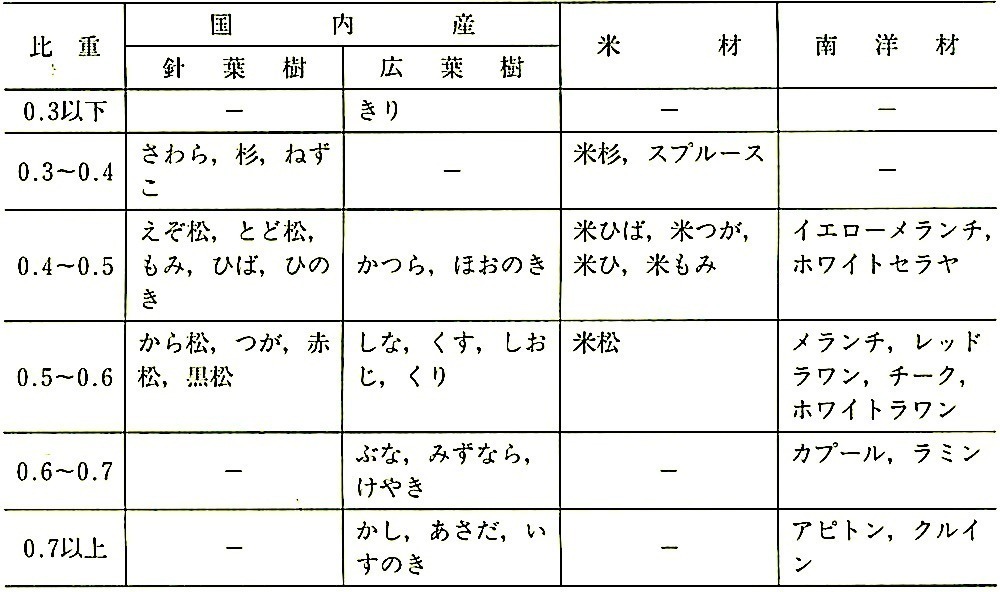 比重 国内産 米材 南洋材
針葉樹 広葉樹
0.3以下 － きり － －
0.3～0.4 さわら，杉，ねず － 米杉，スプルース －
こ
0.4～0.5 えぞ松，とど松， かつら，ほおのき 米ひば，米つが， イエローメランチ，
もみ，ひば，ひの 米ひ，米もみ ホワイトセラヤ
き
0.5～0.6 から松，つが，赤 しな，くす，しお 米松 メランチ，レッド
松，黒松 じ，くり ラワン，チーク，
ホワイトラワン
0.6～0.7 － ぶな，みずなら， － カプール，ラミン
けやき
0.7以上 － かし，あさだ，い － アピトン，クルイ
すのき ン